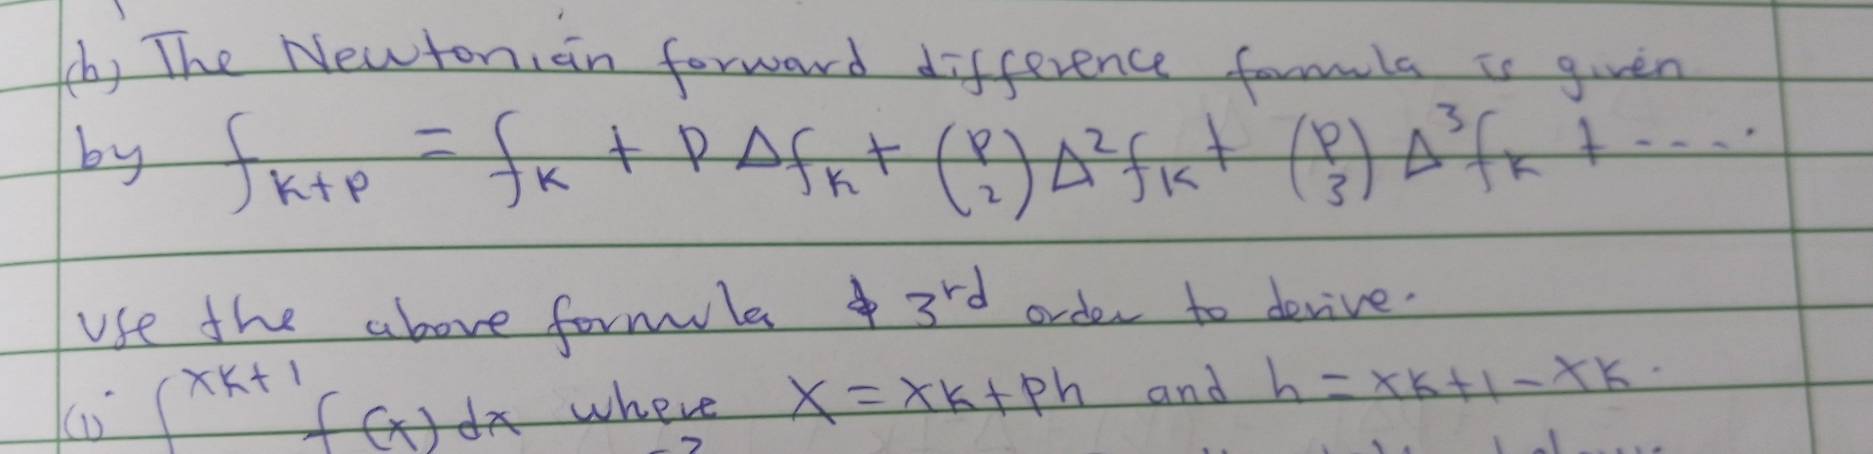 (b) The Newtonian forward difference formula is given
by f_{k+p} = f_k + P Δf_k + (P 2) Δ²f_k + (P 3) Δ³f_k + ....
Use the above formula & 3rd order to derive.
(i) ∫^{xk+1} f(x) dx where X = xk+ph and h = xk+1 - xk.